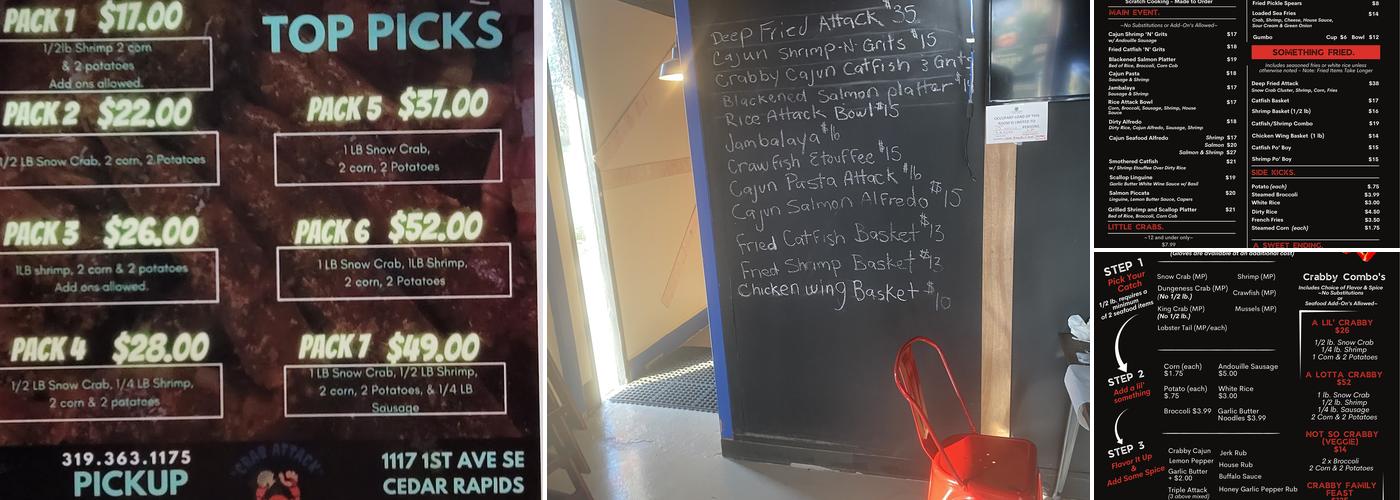 PACK 1 $17.00
1/2lb Shrimp 2 corn
& 2 potatoes
Add ons allowed.
PACK 2 $22.00
1/2 LB Snow Crab, 2 corn, 2 Potatoes
PACK 3 $26.00
1LB shrimp, 2 corn & 2 potatoes
Add ons allowed.
PACK 4 $28.00
1/2 LB Snow Crab, 1/4 LB Shrimp,
2 corn & 2 potatoes
TOP PICKS
PACK 5 $37.00
1 LB Snow Crab,
2 corn, 2 Potatoes
PACK 6 $52.00
1 LB Snow Crab, 1LB Shrimp,
2 corn, 2 Potatoes
PACK 7 $49.00
1 LB Snow Crab, 1/2 LB Shrimp,
2 corn, 2 Potatoes, & 1/4 LB
Sausage
319.363.1175
PICKUP
CRAB ATTACK
1117 1ST AVE SE
CEDAR RAPIDS
Deep Fried Attack $35
Cajun Shrimp-N-Grits $15
Crabby Cajun Catfish & Grits
Blackened Salmon platter
Rice Attack Bowl $15
Jambalaya $16
Crawfish Etouffee $15
Cajun Pasta Attack $16
Cajun Salmon Alfredo $15
Fried Catfish Basket $13
Fried Shrimp Basket $13
Chicken wing Basket $10
OCCUPANT LOAD OF THIS
ROOM IS LIMITED TO
Scratch Cooking - Made to Order
MAIN EVENT.
~No Substitutions or Add-On's Allowed~
Cajun Shrimp 'N' Grits $17
w/ Andouille Sausage
Fried Catfish 'N' Grits $18
Blackened Salmon Platter $19
Bed of Rice, Broccoli, Corn Cob
Cajun Pasta $18
Sausage & Shrimp
Jambalaya $17
Sausage & Shrimp
Rice Attack Bowl $17
Corn, Broccoli, Sausage, Shrimp, House
Sauce
Dirty Alfredo $18
Dirty Rice, Cajun Alfredo, Sausage, Shrimp
Cajun Seafood Alfredo Shrimp $17
Salmon $20
Salmon & Shrimp $27
Smothered Catfish $21
w/ Shrimp Etouffee Over Dirty Rice
Scallop Linguine $19
Garlic Butter White Wine Sauce w/ Basil
Salmon Piccata $20
Linguine, Lemon Butter Sauce, Capers
Grilled Shrimp and Scallop Platter $21
Bed of Rice, Broccoli, Corn Cob
LITTLE CRABS.
~12 and under only~
$7.99
Fried Pickle Spears $8
Loaded Sea Fries $14
Crab, Shrimp, Cheese, House Sauce,
Sour Cream & Green Onion
Gumbo Cup $6 Bowl $12
SOMETHING FRIED.
Includes seasoned fries or white rice unless
otherwise noted - Note: Fried Items Take Longer
Deep Fried Attack $38
Snow Crab Cluster, Shrimp, Corn, Fries
Catfish Basket $17
Shrimp Basket (1/2 lb) $16
Catfish/Shrimp Combo $19
Chicken Wing Basket (1 lb) $14
Catfish Po' Boy $15
Shrimp Po' Boy $15
SIDE KICKS.
Potato (each) $.75
Steamed Broccoli $3.99
White Rice $3.00
Dirty Rice $4.50
French Fries $3.50
Steamed Corn (each) $1.75
A SWEET ENDING.
(Gloves are available at an additional cost)
STEP 1
Pick Your
Catch
1/2 lb. requires a
minimum
of 2 seafood items
Snow Crab (MP) Shrimp (MP)
Dungeness Crab (MP) Crawfish (MP)
(No 1/2 lb.)
King Crab (MP) Mussels (MP)
(No 1/2 lb.)
Lobster Tail (MP/each)
STEP 2
Add a lil'
something
Corn (each) Andouille Sausage
$1.75 $5.00
Potato (each) White Rice
$.75 $3.00
Broccoli $3.99 Garlic Butter
Noodles $3.99
STEP 3
Flavor It Up
& Add Some Spice
Crabby Cajun Jerk Rub
Lemon Pepper House Rub
Garlic Butter Buffalo Sauce
+ $2.00
Triple Attack Honey Garlic Pepper Rub
(3 above mixed)
Crabby Combo's
Includes Choice of Flavor & Spice
~No Substitutions
or
Seafood Add-On's Allowed~
A LIL' CRABBY
$26
1/2 lb. Snow Crab
1/4 lb. Shrimp
1 Corn & 2 Potatoes
A LOTTA CRABBY
$52
1 lb. Snow Crab
1/2 lb. Shrimp
1/4 lb. Sausage
2 Corn & 2 Potatoes
NOT SO CRABBY
(VEGGIE)
$14
2 x Broccoli
2 Corn & 2 Potatoes
CRABBY FAMILY
FEAST